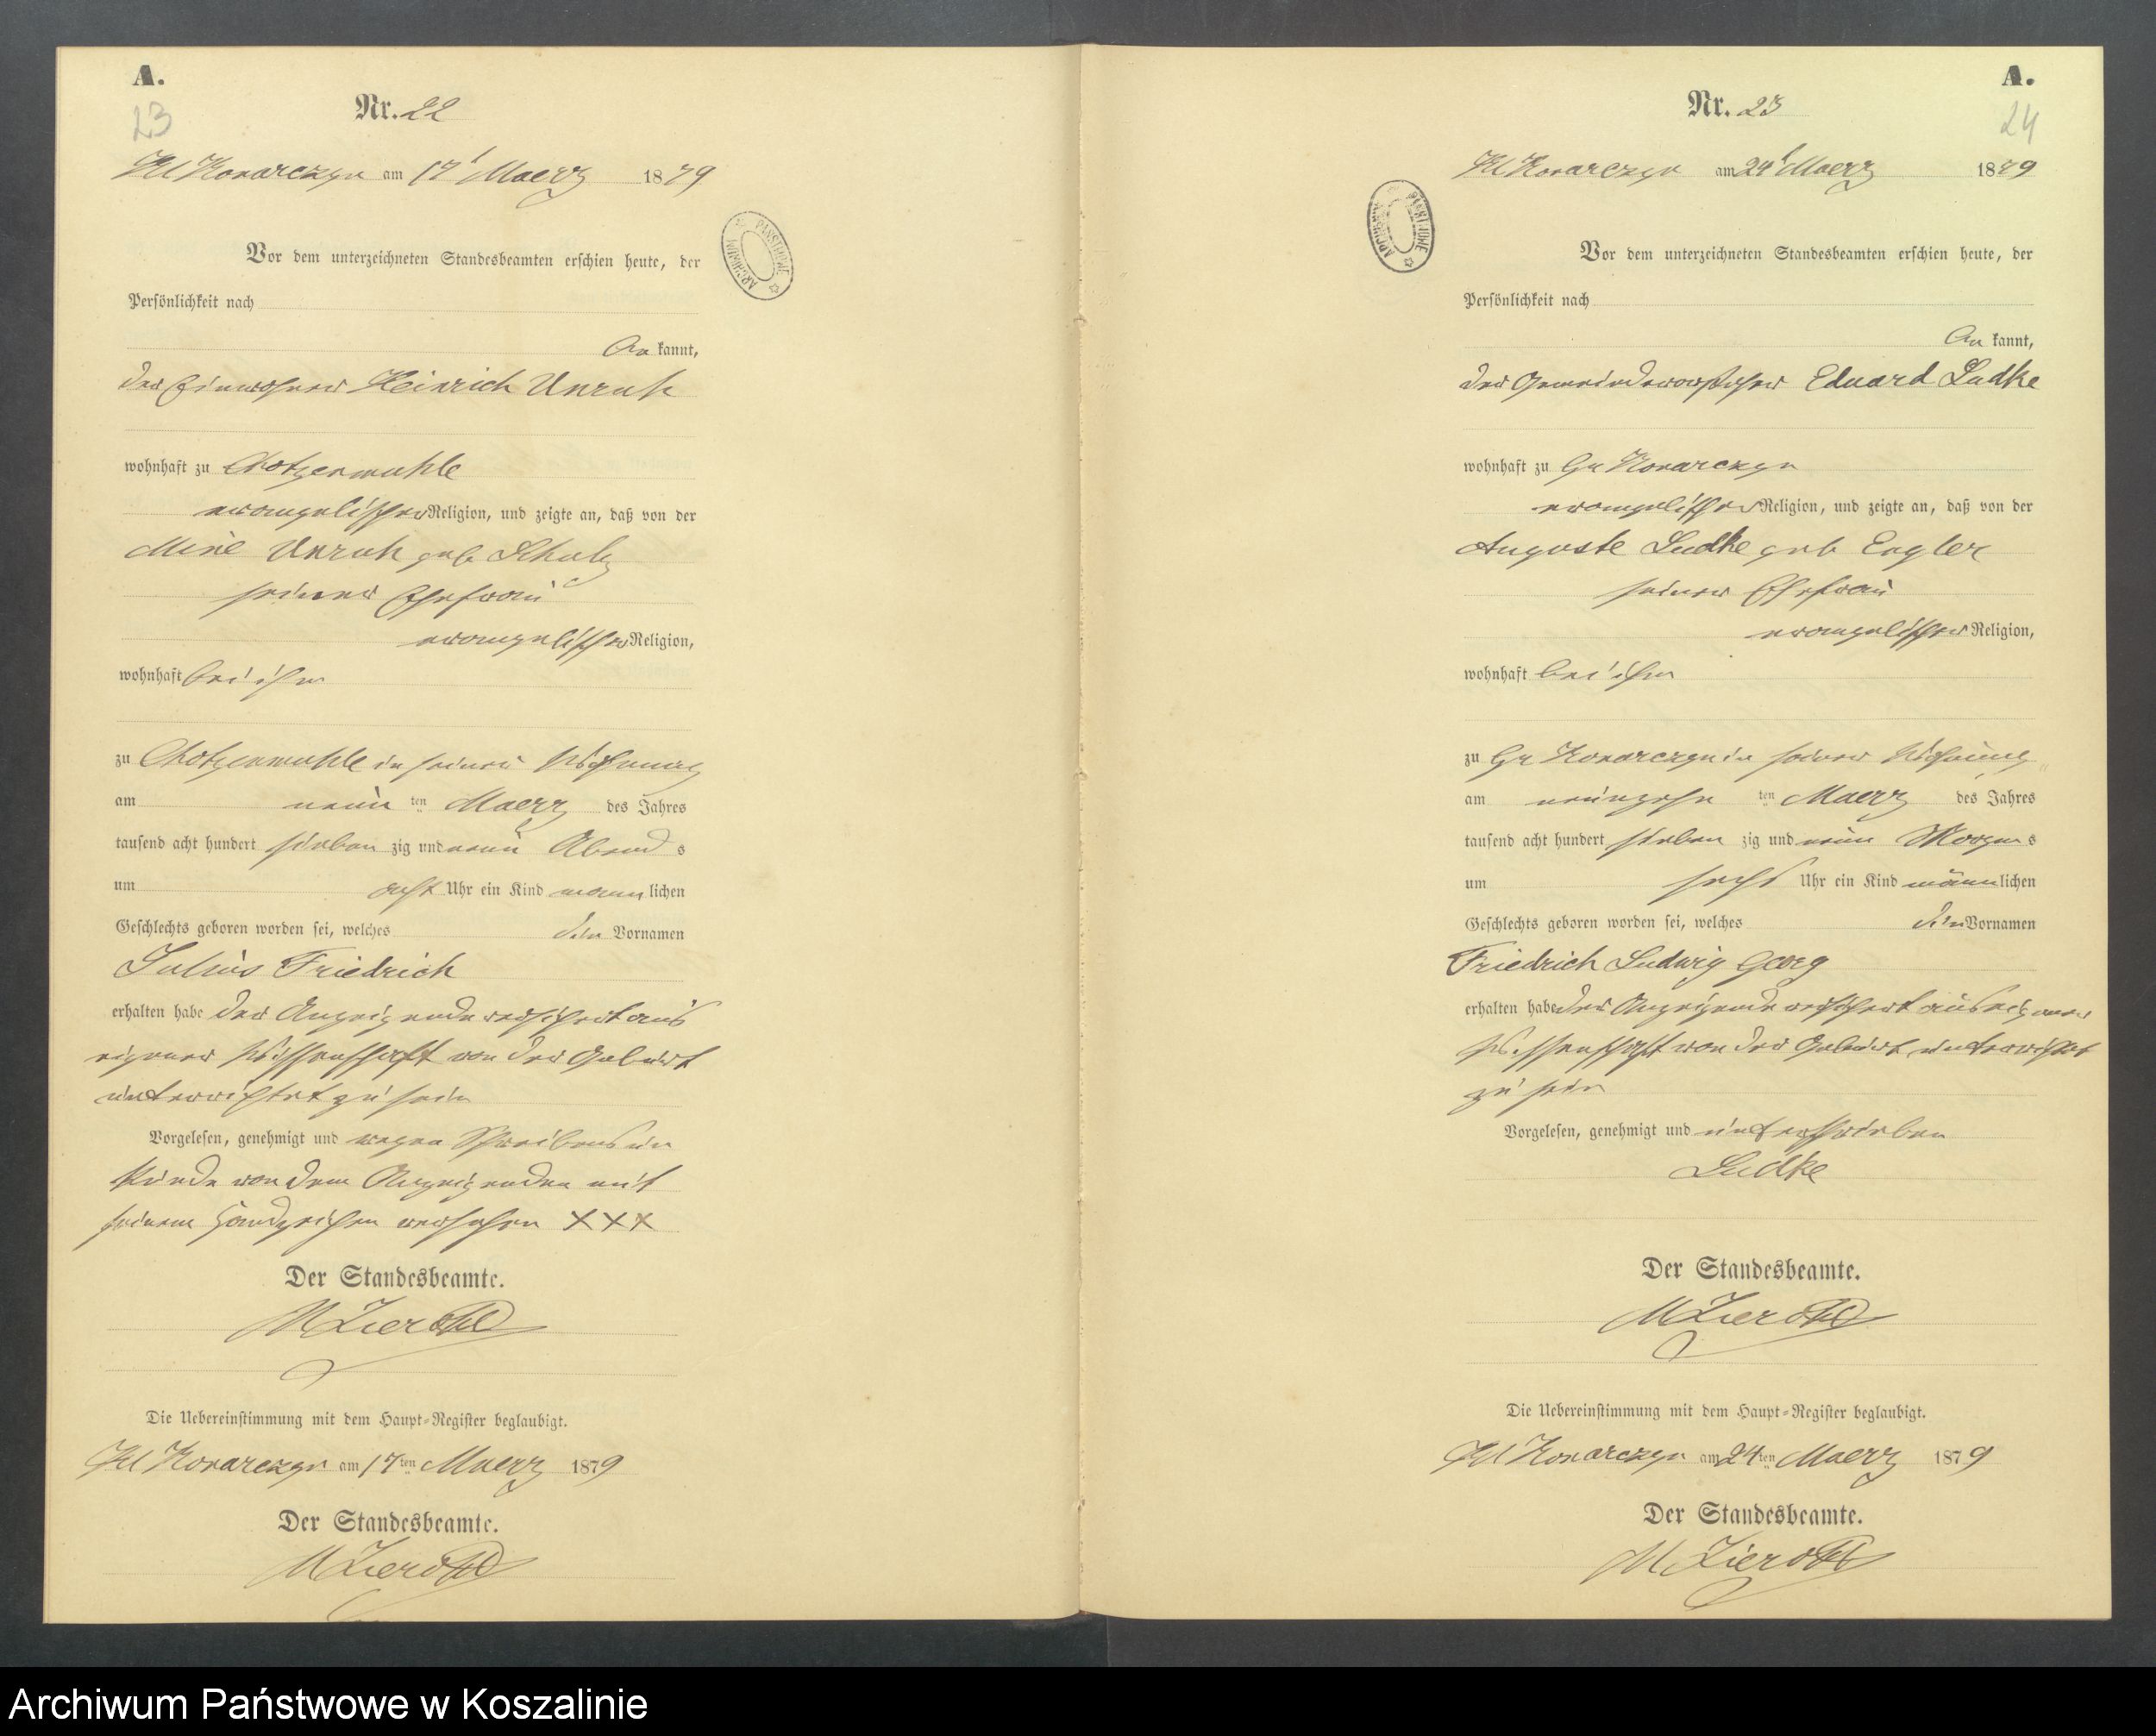 A.
23
Nr. 22
Kl Konarczyn am 17t Maerz 1879
Vor dem unterzeichneten Standesbeamten erschien heute, der
Persönlichkeit nach
be kannt,
der Einwohner Heinrich Unruh
wohnhaft zu Chotzenmuhle
evangelischer Religion, und zeigte an, daß von der
Mine Unruh geb Schulz
seiner Ehefrau
evangelischer Religion,
wohnhaft bei ihm
zu Chotzenmuhle in seiner Wohnung
am neun ten Maerz des Jahres
tausend acht hundert sieben zig und neun Abend s
um acht Uhr ein Kind mann lichen
Geschlechts geboren worden sei, welches den Vornamen
Julius Friedrich
erhalten habe der Anzeigende versichert aus
eigener Wissenschaft von der Geburt
unterrichtet zu sein
Vorgelesen, genehmigt und wegen Schreibensun
kunde von dem Anzeigenden mit
seinem Handzeichen versehen XXX
Der Standesbeamte.
Die Uebereinstimmung mit dem Haupt-Register beglaubigt.
Kl Konarczyn am 17ten Maerz 1879
Der Standesbeamte.
ARCHIWUM PAŃSTWOWE
A.
24
Nr. 23
Kl Konarczyn am 24t Maerz 1879
Vor dem unterzeichneten Standesbeamten erschien heute, der
Persönlichkeit nach
be kannt,
der Gemeindevorsteher Eduard Ludke
wohnhaft zu Gr Konarczyn
evangelischer Religion, und zeigte an, daß von der
Auguste Ludke geb Engler
seiner Ehefrau
evangelischer Religion,
wohnhaft bei ihm
zu Gr Konarczyn in seiner Wohnung
am neunzehn ten Maerz des Jahres
tausend acht hundert sieben zig und neun Morgen s
um sechs Uhr ein Kind männlichen
Geschlechts geboren worden sei, welches den Vornamen
Friedrich Ludwig Georg
erhalten habe der Anzeigende versichert aus eigener
Wissenschaft von der Geburt unterrichtet
zu sein
Vorgelesen, genehmigt und unterschrieben
Ludke
Der Standesbeamte.
Die Uebereinstimmung mit dem Haupt-Register beglaubigt.
Kl Konarczyn am 24ten Maerz 1879
Der Standesbeamte.
ARCHIWUM PAŃSTWOWE
Archiwum Państwowe w Koszalinie